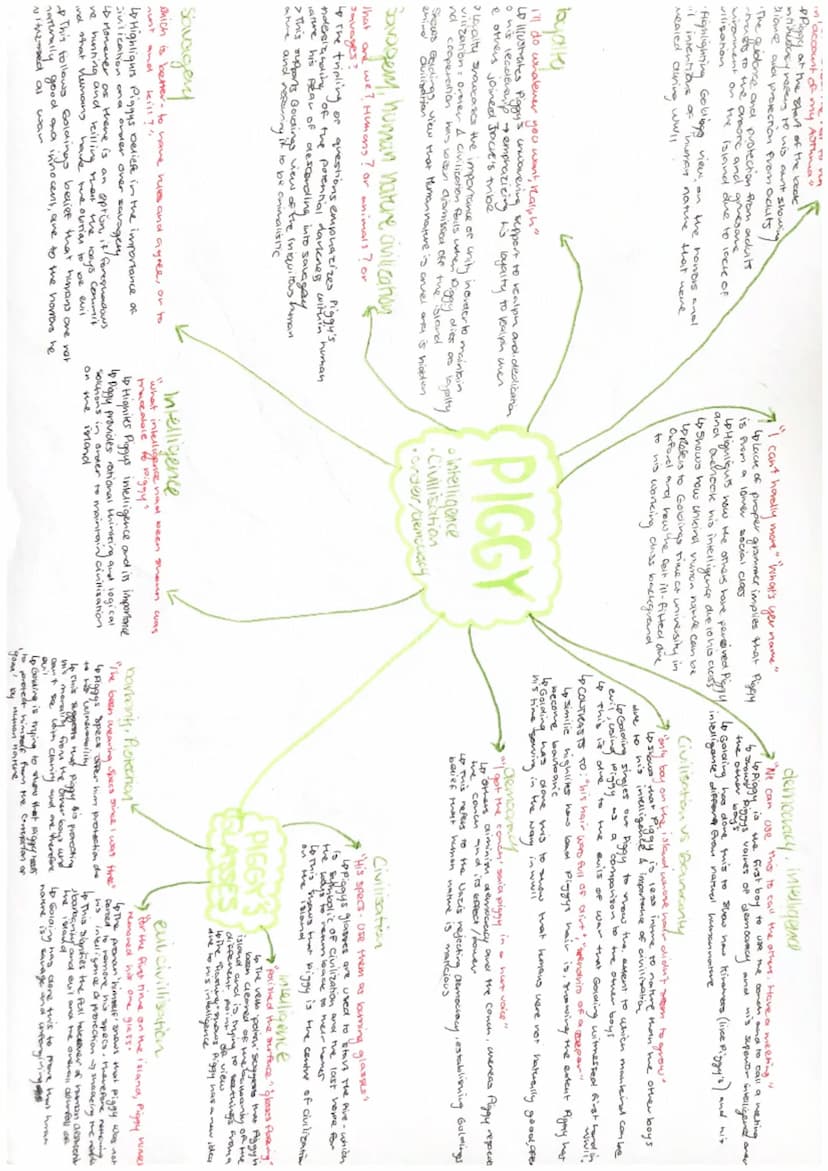 PIGGY
• Intelligence
• Civilisation
• Order/democracy
loyalty
"I'll do whatever you want, Ralph"
↳ Illustrates Piggy's unwavering support to Ralph and dedication
to his leadership → emphasizing his loyalty to Ralph when
the others joined Jack's tribe
Loyalty showcases the importance of unity in order to maintain
civilization: order & civilization falls when Piggy dies as loyalty
and cooperation has been dismissed off the island
Shows Goldings view that human nature is cruel and is hidden
behind civilisation
Savagery, human nature, civilization
What are we? Humans? or animals? or
savages?
↳ The tripling of questions emphasizes Piggy's
understanding of the potential darkness within human
nature his fear of descending into savagery
> This supports Goldings view of the iniquitous human
nature and reasoning it to be animalistic
Savagery
which is better- to have rules and agree, or to
hunt and kill?"
↳ Highlights Piggys belief in the importance of
civilization and order over savagery
↳ However as there is an option, it foreshadows
the hunting and killing that the boys commit
and that humans have the option to be evil
↳ This follows Goldings belief that humans are not
naturally good and innocent, due to the horrors he
witnessed at war
Intelligence
"what intelligence had been shown was
traceable to Piggy"
↳ Highlites Piggys intelligence and is importance
↳ Piggy provides rational thinking and logical
solutions in order to maintain civilization
on the island
on account of my asthma"
↳ Piggy at the start of the book
continuously refers to his aunt showing
guidance and protection from adults
The guidance and protection from adults
environment on the island due to lack of
civilisation
Highlighting Goldings view on the horrors and
of human nature that were
revealed during WWII
"I can't hardly move" "What's yer name"
↳ Lack of proper grammar implies that Piggy
is from a lower social class
↳ Highlights how the others have perceived Piggy
and overlook his intelligence due to his class
↳ Shows how unkind human nature can be
↳ Refers to Goldings time at university in
Oxford and how he felt ill-fitted due
to his working class background
democracy, intelligence
"We can use this to call the others. Have a meeting"
↳ Piggy is the first boy to use the conch and to call a meeting
↳ Shows Piggys values of democracy and his superior intelligence over
the other boys
↳ Golding has done this to show how kindness (like Piggy's) and his
intelligence differs from natural human nature
Civilization vs Barbarity
"only boy on the island whose hair didn't seem to grow"
↳ Shows that Piggy is less intune to nature than the other boys
due to his intelligence & importance of civilization
↳ Golding singles out Piggy to show the extent to which mankind can be
evil, using Piggy as a comparison to the other boys
↳ This is due to the evils of war that Golding witnessed first hand in
WWII
↳ CONTRASTS TO: "his hair was full of dirt"
↳ Simile highlites how bad Piggys hair is, showing the extent Piggy has
become barbaric
↳ Golding has done this to show that humans were not naturally good after
his time serving in the navy in WWII
democracy
"I got the conch, said Piggy in a hurt voice"
↳ Others diminish democracy and the conch, whereas Piggy
the conch and its effect/power
↳ This refers to the Nazis rejecting democracy, establishing Goldings
belief that human nature is malicious
PIGGY'S
GLASSES
Civilisation
"His specs- use them as burning glasses"
↳ Piggys glasses are used to start the fire - which
is symbolic of civilization and the last hope for
the boys to return back to their homes
↳ This shows that Piggy is the center of civilization
on the island
intelligence
↳ The verb 'polish' suggests that Piggy
been cleaned of the barbarity of the
island and is trying to see things from a
different point of view
↳ The 'flashing' shows Piggy has a new idea
due to his intelligence
evil, civilisation
for the first time on the island, Piggy himself
removed his one glass.
↳ The pronoun 'himself' shows that Piggy was not
forced to remove his specs, therefore removing
his intelligence & protection
↳ This signifies the full takeover of human
barbarity and evil and the overall downfall of
the island
↳ Golding has done this to prove that human
nature is savage and
Protection
"I've been wearing specs since I was three"
↳ Piggys specs offer him protection due
to his vulnerability
↳ This suggests that Piggy is protecting
his morality from the other boys who
can't see with clarity and are therefore
evil
↳ Golding is trying to show that Piggy
to protect himself from the corruption of
by human nature